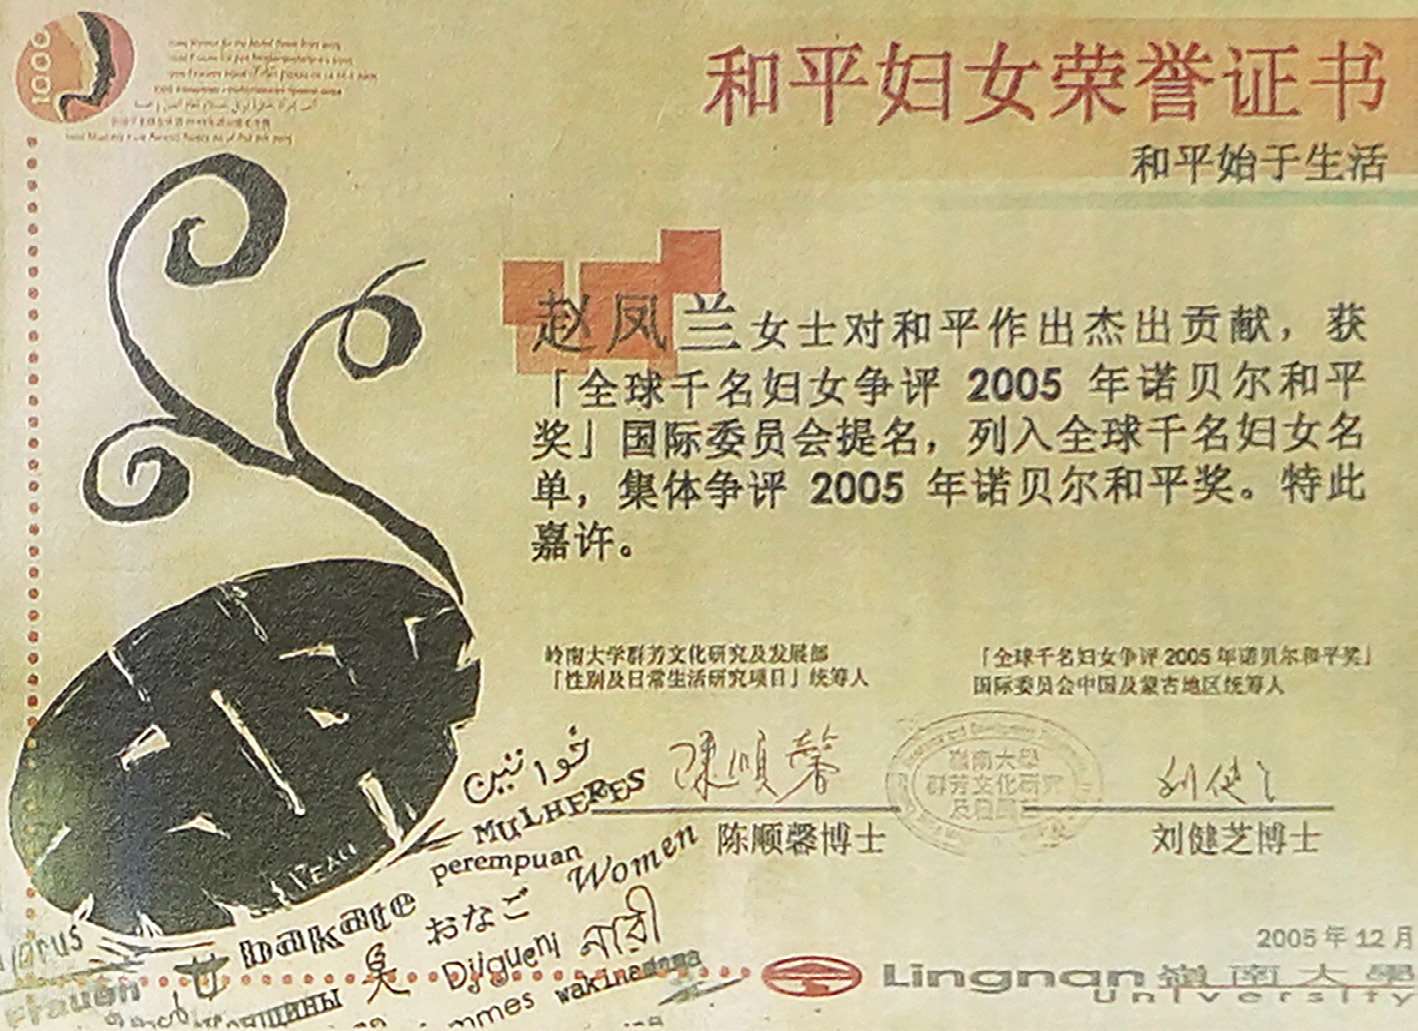 1000
和平妇女荣誉证书
和平始于生活
赵凤兰女士对和平作出杰出贡献，获
「全球千名妇女争评 2005 年诺贝尔和平
奖」国际委员会提名，列入全球千名妇女名
单，集体争评 2005 年诺贝尔和平奖。特此
嘉许。
岭南大学群芳文化研究及发展部
「性别及日常生活研究项目」统筹人
「全球千名妇女争评 2005 年诺贝尔和平奖」
国际委员会中国及蒙古地区统筹人
陳順馨
嶺南大學
群芳文化研究
陈顺馨博士
刘健芝博士
خواتين
MULHERES
perempuan
Women
bakate
おなご
Djigueni
নারী
女
wakinamama
2005 年 12 月
Lingnan 嶺南大學
University